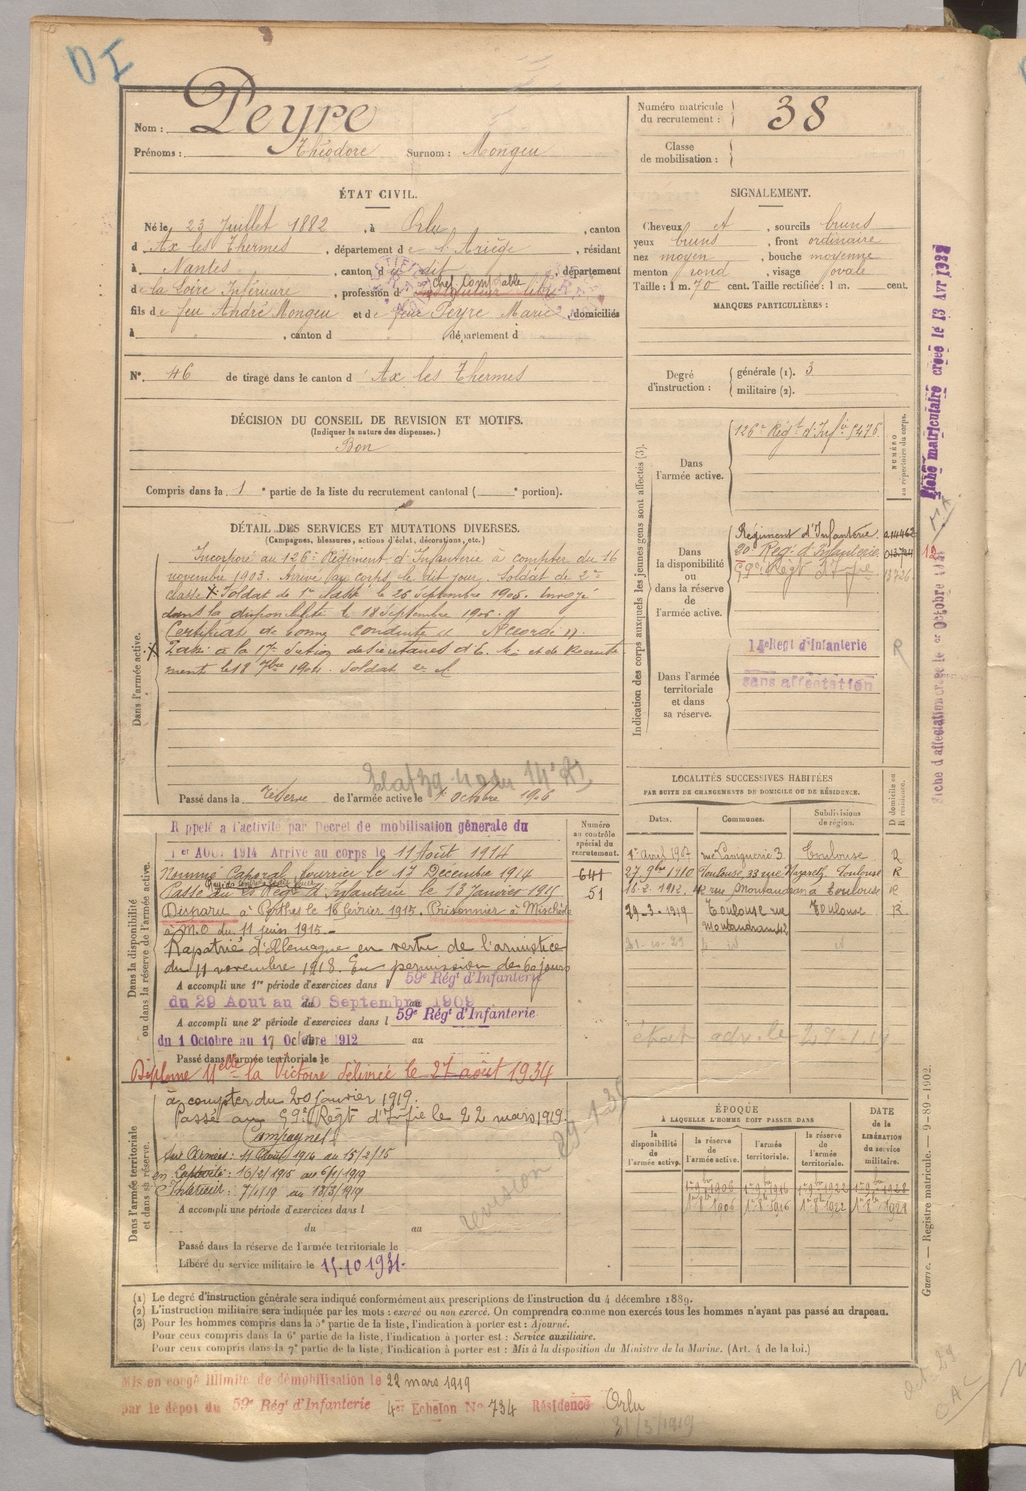 DI
Nom : Peyre
Prénoms : Théodore Surnom : Mongeu
Numéro matricule du recrutement : 38
Classe de mobilisation :
ÉTAT CIVIL.
Né le 23 Juillet 1882, à Orlu, canton
d Ax les Thermes, département de l'Ariège, résidant
à Nantes, canton d dit, département
de la Loire Inférieure, profession d Chef Comptable
fils de feu André Mongeu et de feue Peyre Marie domiciliés
à , canton d , département d
N° 46 de tirage dans le canton d'Ax les Thermes
SIGNALEMENT.
Cheveux et , sourcils bruns
yeux bruns , front ordinaire
nez moyen , bouche moyenne
menton rond , visage ovale
Taille : 1 m. 70 cent. Taille rectifiée : 1 m. cent.
MARQUES PARTICULIÈRES :
Degré d'instruction : générale (1). 3
militaire (2).
DÉCISION DU CONSEIL DE REVISION ET MOTIFS.
(Indiquer la nature des dispenses.)
Bon
Compris dans la 1e partie de la liste du recrutement cantonal ( e portion).
DÉTAIL DES SERVICES ET MUTATIONS DIVERSES.
(Campagnes, blessures, actions d'éclat, décorations, etc.)
Dans l'armée active.
Incorporé au 126e Régiment d'Infanterie à compter du 16
novembre 1903. Arrivé au corps le dit jour. Soldat de 2e
classe X Soldat de 1re classe le 26 Septembre 1905. Envoyé
dans la disponibilité le 18 Septembre 1906.
Certificat de bonne conduite "Accordé".
X Passé à la 17e Section de Secrétaires d'E. M. et de Recrute-
ment le 18 7bre 1904. Soldat
Passé dans la réserve de l'armée active le 1er octobre 1906
Indication des corps auxquels les jeunes gens sont affectés (3).
NUMÉRO au répertoire du corps.
Dans l'armée active.
126e Régt d'Infie 5476
Dans la disponibilité ou dans la réserve de l'armée active.
Régiment d'Infanterie.
20e Reg. d'Infanterie
59e Régt d'Infie
Dans l'armée territoriale et dans sa réserve.
14e Regt d'Infanterie
sans affectation
R
Fiche matriculaire créée le 13 Avr 1922
LOCALITÉS SUCCESSIVES HABITÉES
PAR SUITE DE CHANGEMENTS DE DOMICILE OU DE RÉSIDENCE.
Dates. Communes. Subdivisions de région. D domicile ou R résidence.
1er Avril 1907 rue 3 Toulouse R
27 9bre 1910 Toulouse, 33 rue Nazareth Toulouse R
16-2-1912. 42 rue Montaudran à Toulouse R
29-3-1919 Toulouse rue Montaudran 42 Toulouse R
Dans la disponibilité ou dans la réserve de l'armée active.
Numéro au contrôle spécial du recrutement.
641
51
Rappelé à l'activité par Décret de mobilisation générale du
1er AOUT 1914 Arrivé au corps le 11 Août 1914
Nommé Caporal fourrier le 17 Décembre 1914
Passé au Régt d'Infanterie le 13 Janvier 1915
Disparu à Perthes le 16 février 1915. Prisonnier à Meschède
à M.O du 11 juin 1915.
Rapatrié d'Allemagne en vertu de l'armistice
du 11 novembre 1918. En permission de 60 jours
A accompli une 1re période d'exercices dans l 59e Régt d'Infanterie
du 29 Aout au 20 Septembre 1909
A accompli une 2e période d'exercices dans l 59e Régt d'Infanterie
du 1 Octobre au 17 Octobre 1912 au
Passé dans l'armée territoriale le
Diplome Melle la Victoire délivrée le 27 août 1934
Dans l'armée territoriale et dans sa réserve.
à compter du 20 janvier 1919.
Passé au 59e Régt d'Infie le 22 mars 1919.
Campagnes
aux Armées : 11 Août 1914 au 15/2/15
en Captivité : 16/2/1915 au 6/1/1919
Intérieur : 7/1/19 au 18/3/1919
A accompli une période d'exercices dans l
du au
Passé dans la réserve de l'armée territoriale le
Libéré du service militaire le 15-10-1931-
ÉPOQUE
À LAQUELLE L'HOMME DOIT PASSER DANS
la disponibilité de l'armée active. la réserve de l'armée active. l'armée territoriale. la réserve de l'armée territoriale.
DATE de la LIBÉRATION du service militaire.
1er 9bre 1906 1er 9bre 1916 1er 9bre 1922 1er 9bre 1928
1er 8bre 1906 1er 8bre 1916 1er 8bre 1922 1er 8bre 1928
Guerre. — Registre matricule. — 9-80-1902.
(1) Le degré d'instruction générale sera indiqué conformément aux prescriptions de l'instruction du 4 décembre 1889.
(2) L'instruction militaire sera indiquée par les mots : exercé ou non exercé. On comprendra comme non exercés tous les hommes n'ayant pas passé au drapeau.
(3) Pour les hommes compris dans la 5e partie de la liste, l'indication à porter est : Ajourné.
Pour ceux compris dans la 6e partie de la liste, l'indication à porter est : Service auxiliaire.
Pour ceux compris dans la 7e partie de la liste, l'indication à porter est : Mis à la disposition du Ministre de la Marine. (Art. 4 de la loi.)
Mis en congé illimité de démobilisation le 22 mars 1919
par le dépôt du 59e Régt d'Infanterie 4e Echelon N° 734 Résidence Orlu
31/3/1919